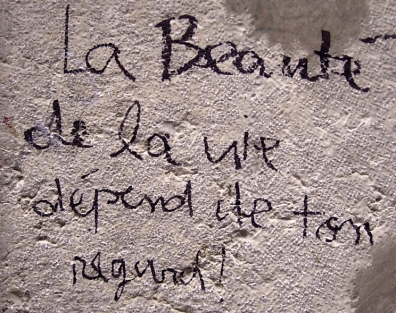 La Beauté
de la vie
dépend de ton
regard!